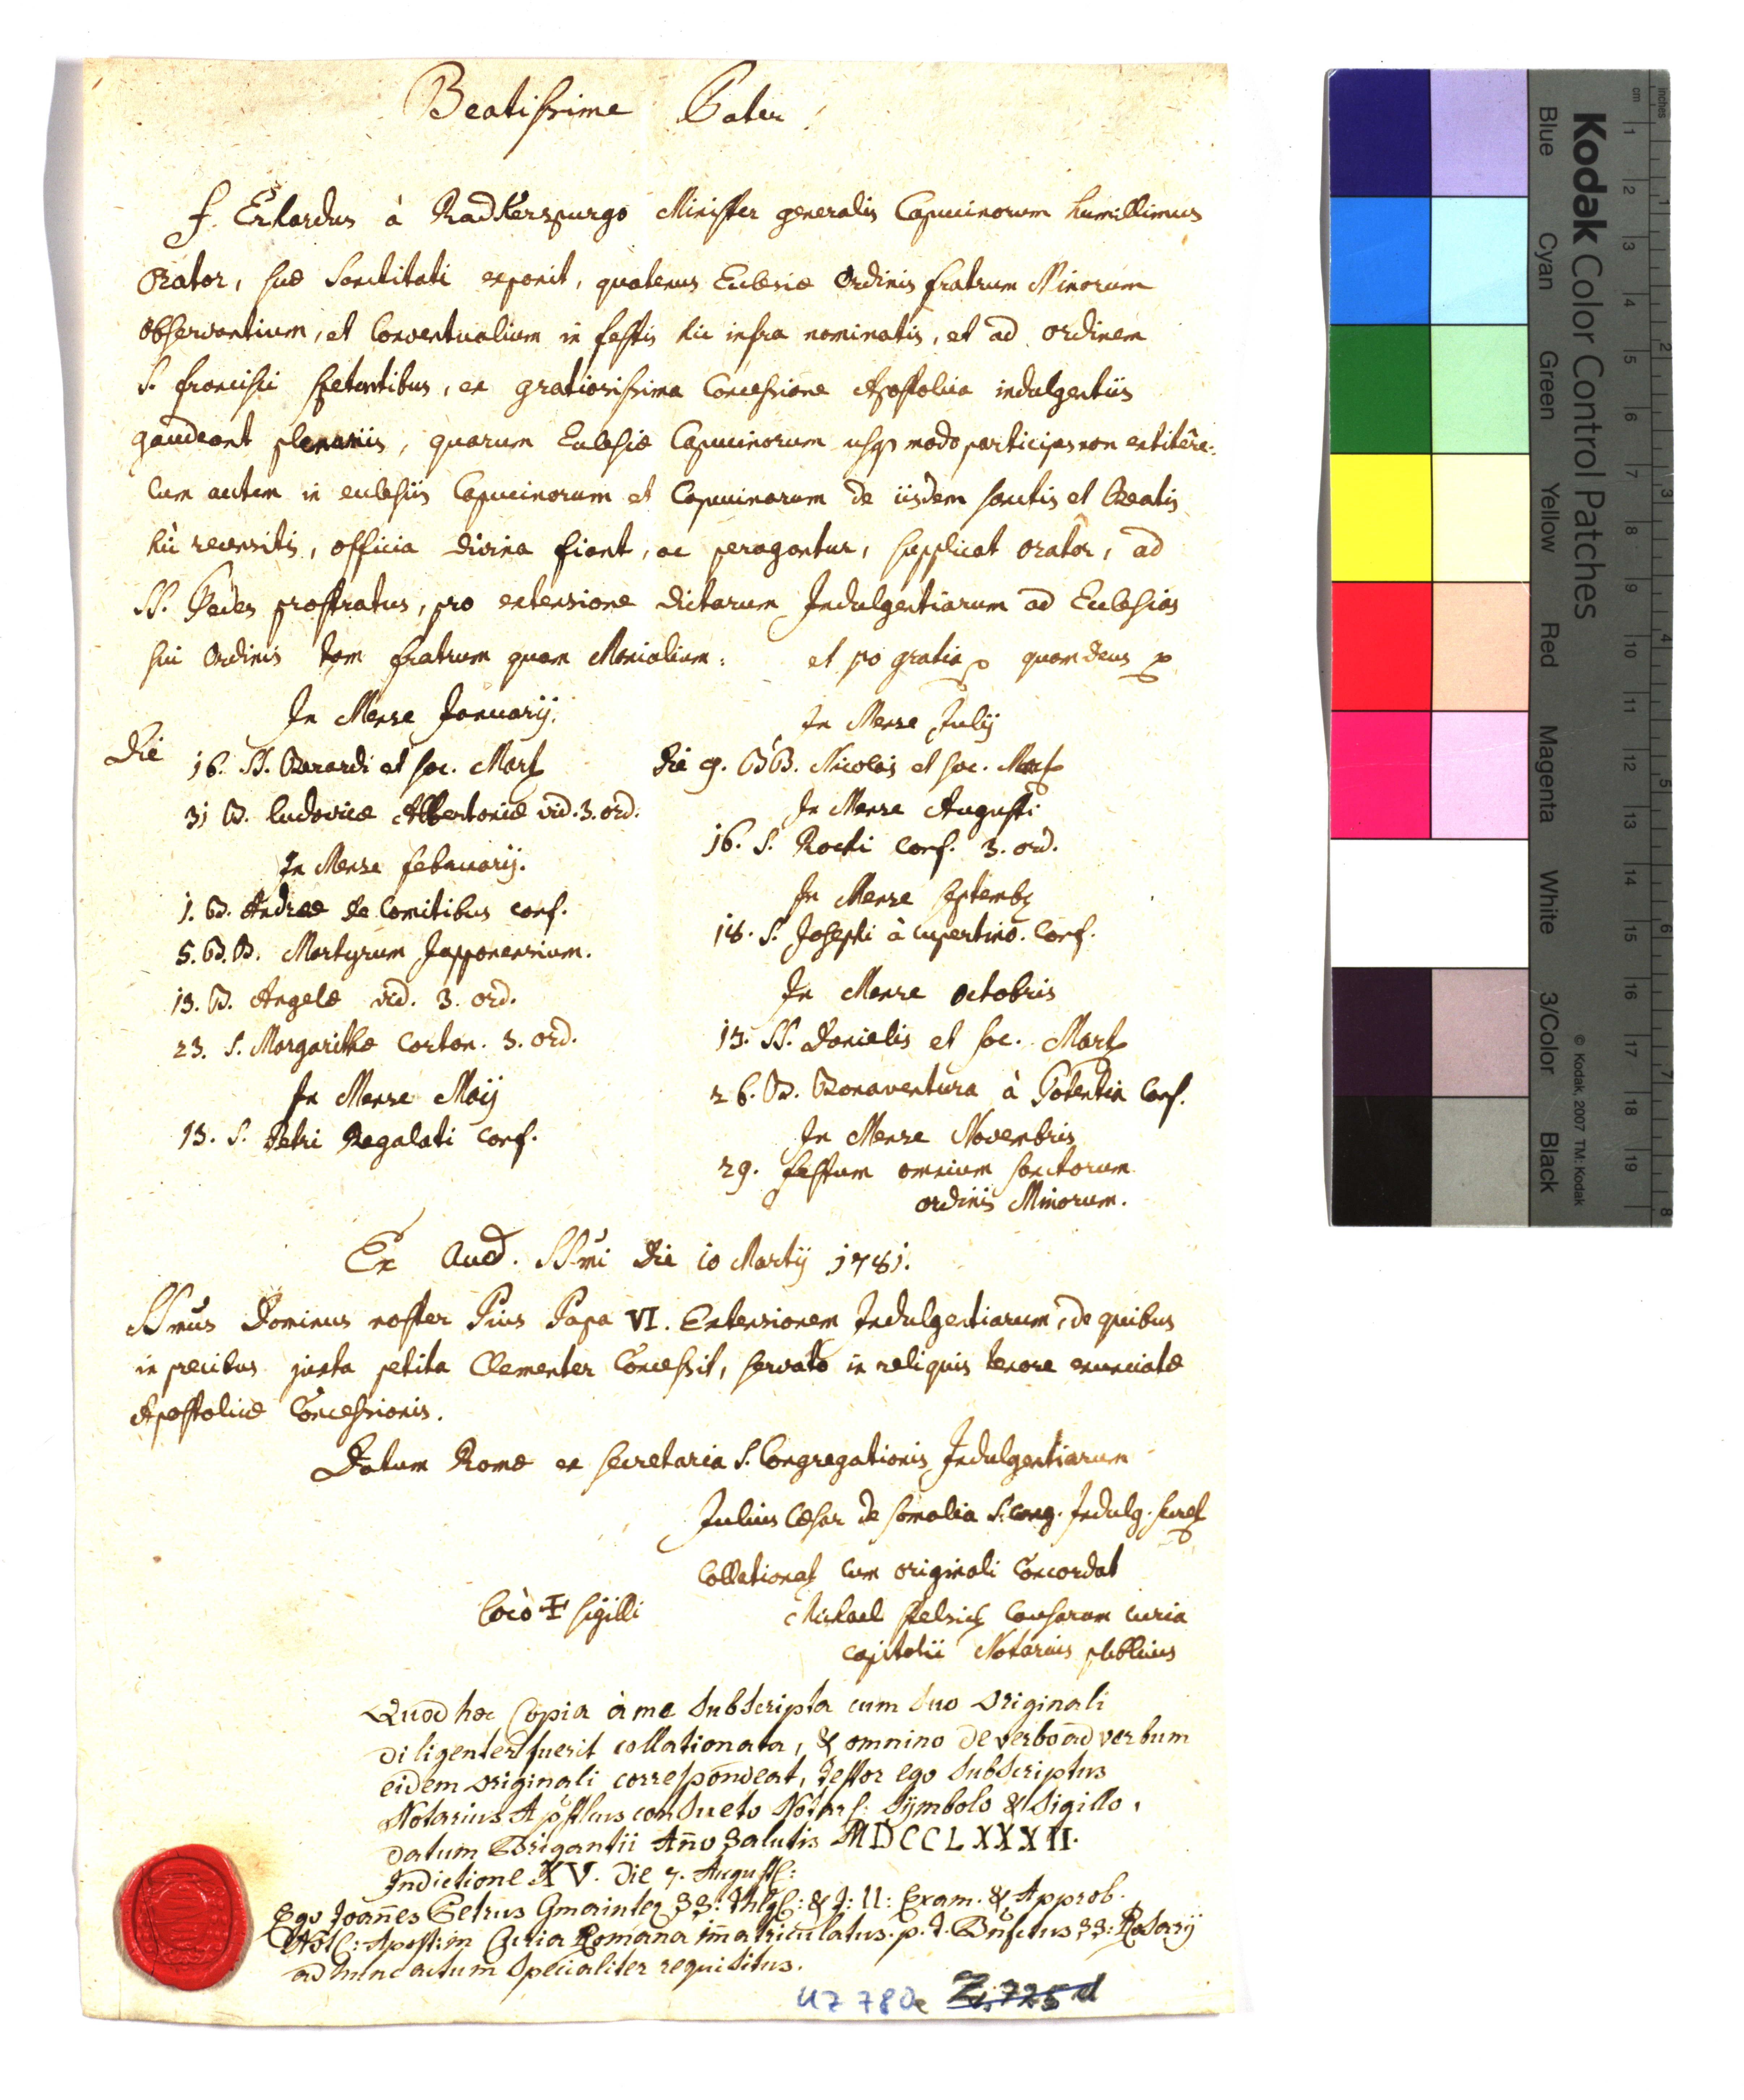 Beatissime Pater!
F. Erhardus à Radkerspurgo Minister generalis Capucinorum humillimus
Orator, suæ Sanctitati exponit, quatenus Ecclesiæ Ordinis fratrum Minorum
observantium, et Conventualium in festis hic infra nominatis, et ad ordinem
S. Francisci spectantibus, ex gratiosissima Concessione Apostolica indulgentiis
gaudeant plenariis, quarum Ecclesiæ Capucinorum usq modo participes non extitêre:
Cum autem in ecclesiis Capucinorum et Capucinarum de iisdem sanctis et Beatis
hic recensitis, officia divina fiant, ac peragantur, supplicat orator, ad
SS. Pedes prostratus, pro extensione dictarum Indulgentiarum ad Ecclesias
sui Ordinis tam fratrum quam Monialium: et pro gratia quam Deus
In Mense Januarij.
Die 16. SS. Berardi et soc. Mart
31 B. Ludovicæ Albertoniæ vid. 3. ord.
In Mense februarij.
1. B. Andreæ de Comitibus conf.
5. B.B. Martyrum Japponensium.
13. B. Angelæ vid. 3. ord.
23. S. Margarithæ Corton. 3. ord.
In Mense Maij
13. S. Petri Regalati conf.
In Mense Julij
Die 9. BB. Nicolai et soc. Mart
In Mense Augusti
16. S. Rochi conf. 3. ord.
In Mense septemb
18. S. Josephi à cupertino. Conf.
In Mense octobris
13. SS. Danielis et soc. Mart
26. B. Bonaventura à Potentia Conf.
In Mense Novembris
29. festum omnium sanctorum
ordinis Minorum.
Ex Aud. SSmi Die 10 Martij 1781.
SSmus Dominus noster Pius Papa VI. Extensionem Indulgentiarum, de quibus
in precibus juxta petita Clementer Concessit, servato in reliquis tenore enunciatæ
Apostolicæ Concessionis.
Datum Romæ ex secretaria S. Congregationis Indulgentiarum
Julius Cæsar de Somalia S. Cong. Indulg. secret
Collationat cum originali Concordat
Loco + sigilli
Michael Causarum curia
capitolii Notarius publicus
Quod hæc Copia à me subscripta cum suo originali
diligenter fuerit collationata, & omnino de verbo ad verbum
eidem originali correspondeat, testor ego subscriptus
Notarius Apostlicus consueto Notar: Symbolo & Sigillo.
datum Brigantii Añno Salutis MDCCLXXXII.
Indictione XV. Die 7. August:
Ego Joañes Petrus Gmainter SS: Thlg: & J: U: Exam. & Approb.
Not: Apost: in Curia Romana im̃atriculatus. p. t. Bñfctus SS: Rosarij
ad hunc actum specialiter requisitus.
UZ 780e Z. 725 d
Kodak Color Control Patches
Blue Cyan Green Yellow Red Magenta White 3/Color Black
© Kodak, 2007 TM: Kodak
inches 1 2 3 4 5 6 7 8
cm 1 2 3 4 5 6 7 8 9 10 11 12 13 14 15 16 17 18 19